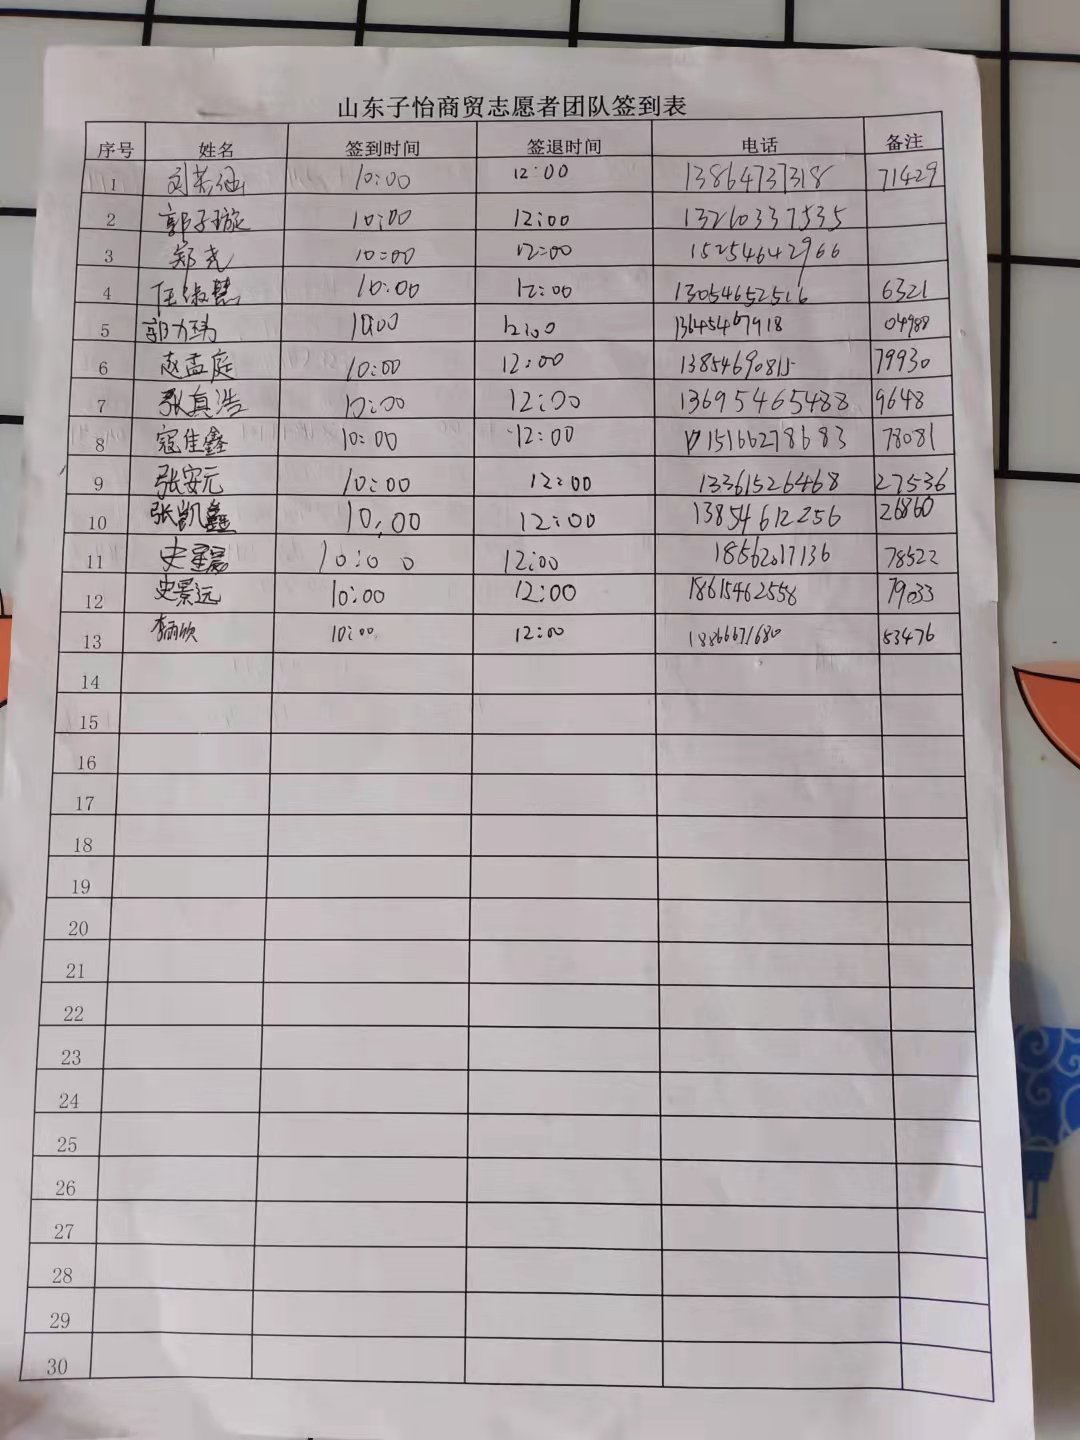 山东子怡商贸志愿者团队签到表
序号 姓名 签到时间 签退时间 电话 备注
1 刘若涵 10:00 12:00 13864737318 71429
2 郭子璇 10:00 12:00 13260337535
3 郑尧 10:00 12:00 15254642966
4 任淑慧 10:00 12:00 13054652516 6321
5 郭力玮 10:00 12:00 13645467918 04988
6 赵孟庭 10:00 12:00 13854690815 79930
7 张真浩 10:00 12:00 13695465488 9648
8 寇佳鑫 10:00 12:00 15166278683 78081
9 张安元 10:00 12:00 13361526468 27536
10 张凯鑫 10:00 12:00 13854612256 26860
11 10:00 12:00 18562017136 78522
12 史景远 10:00 12:00 18615462558 79033
13 10:00 12:00 18866671680 53476
14
15
16
17
18
19
20
21
22
23
24
25
26
27
28
29
30